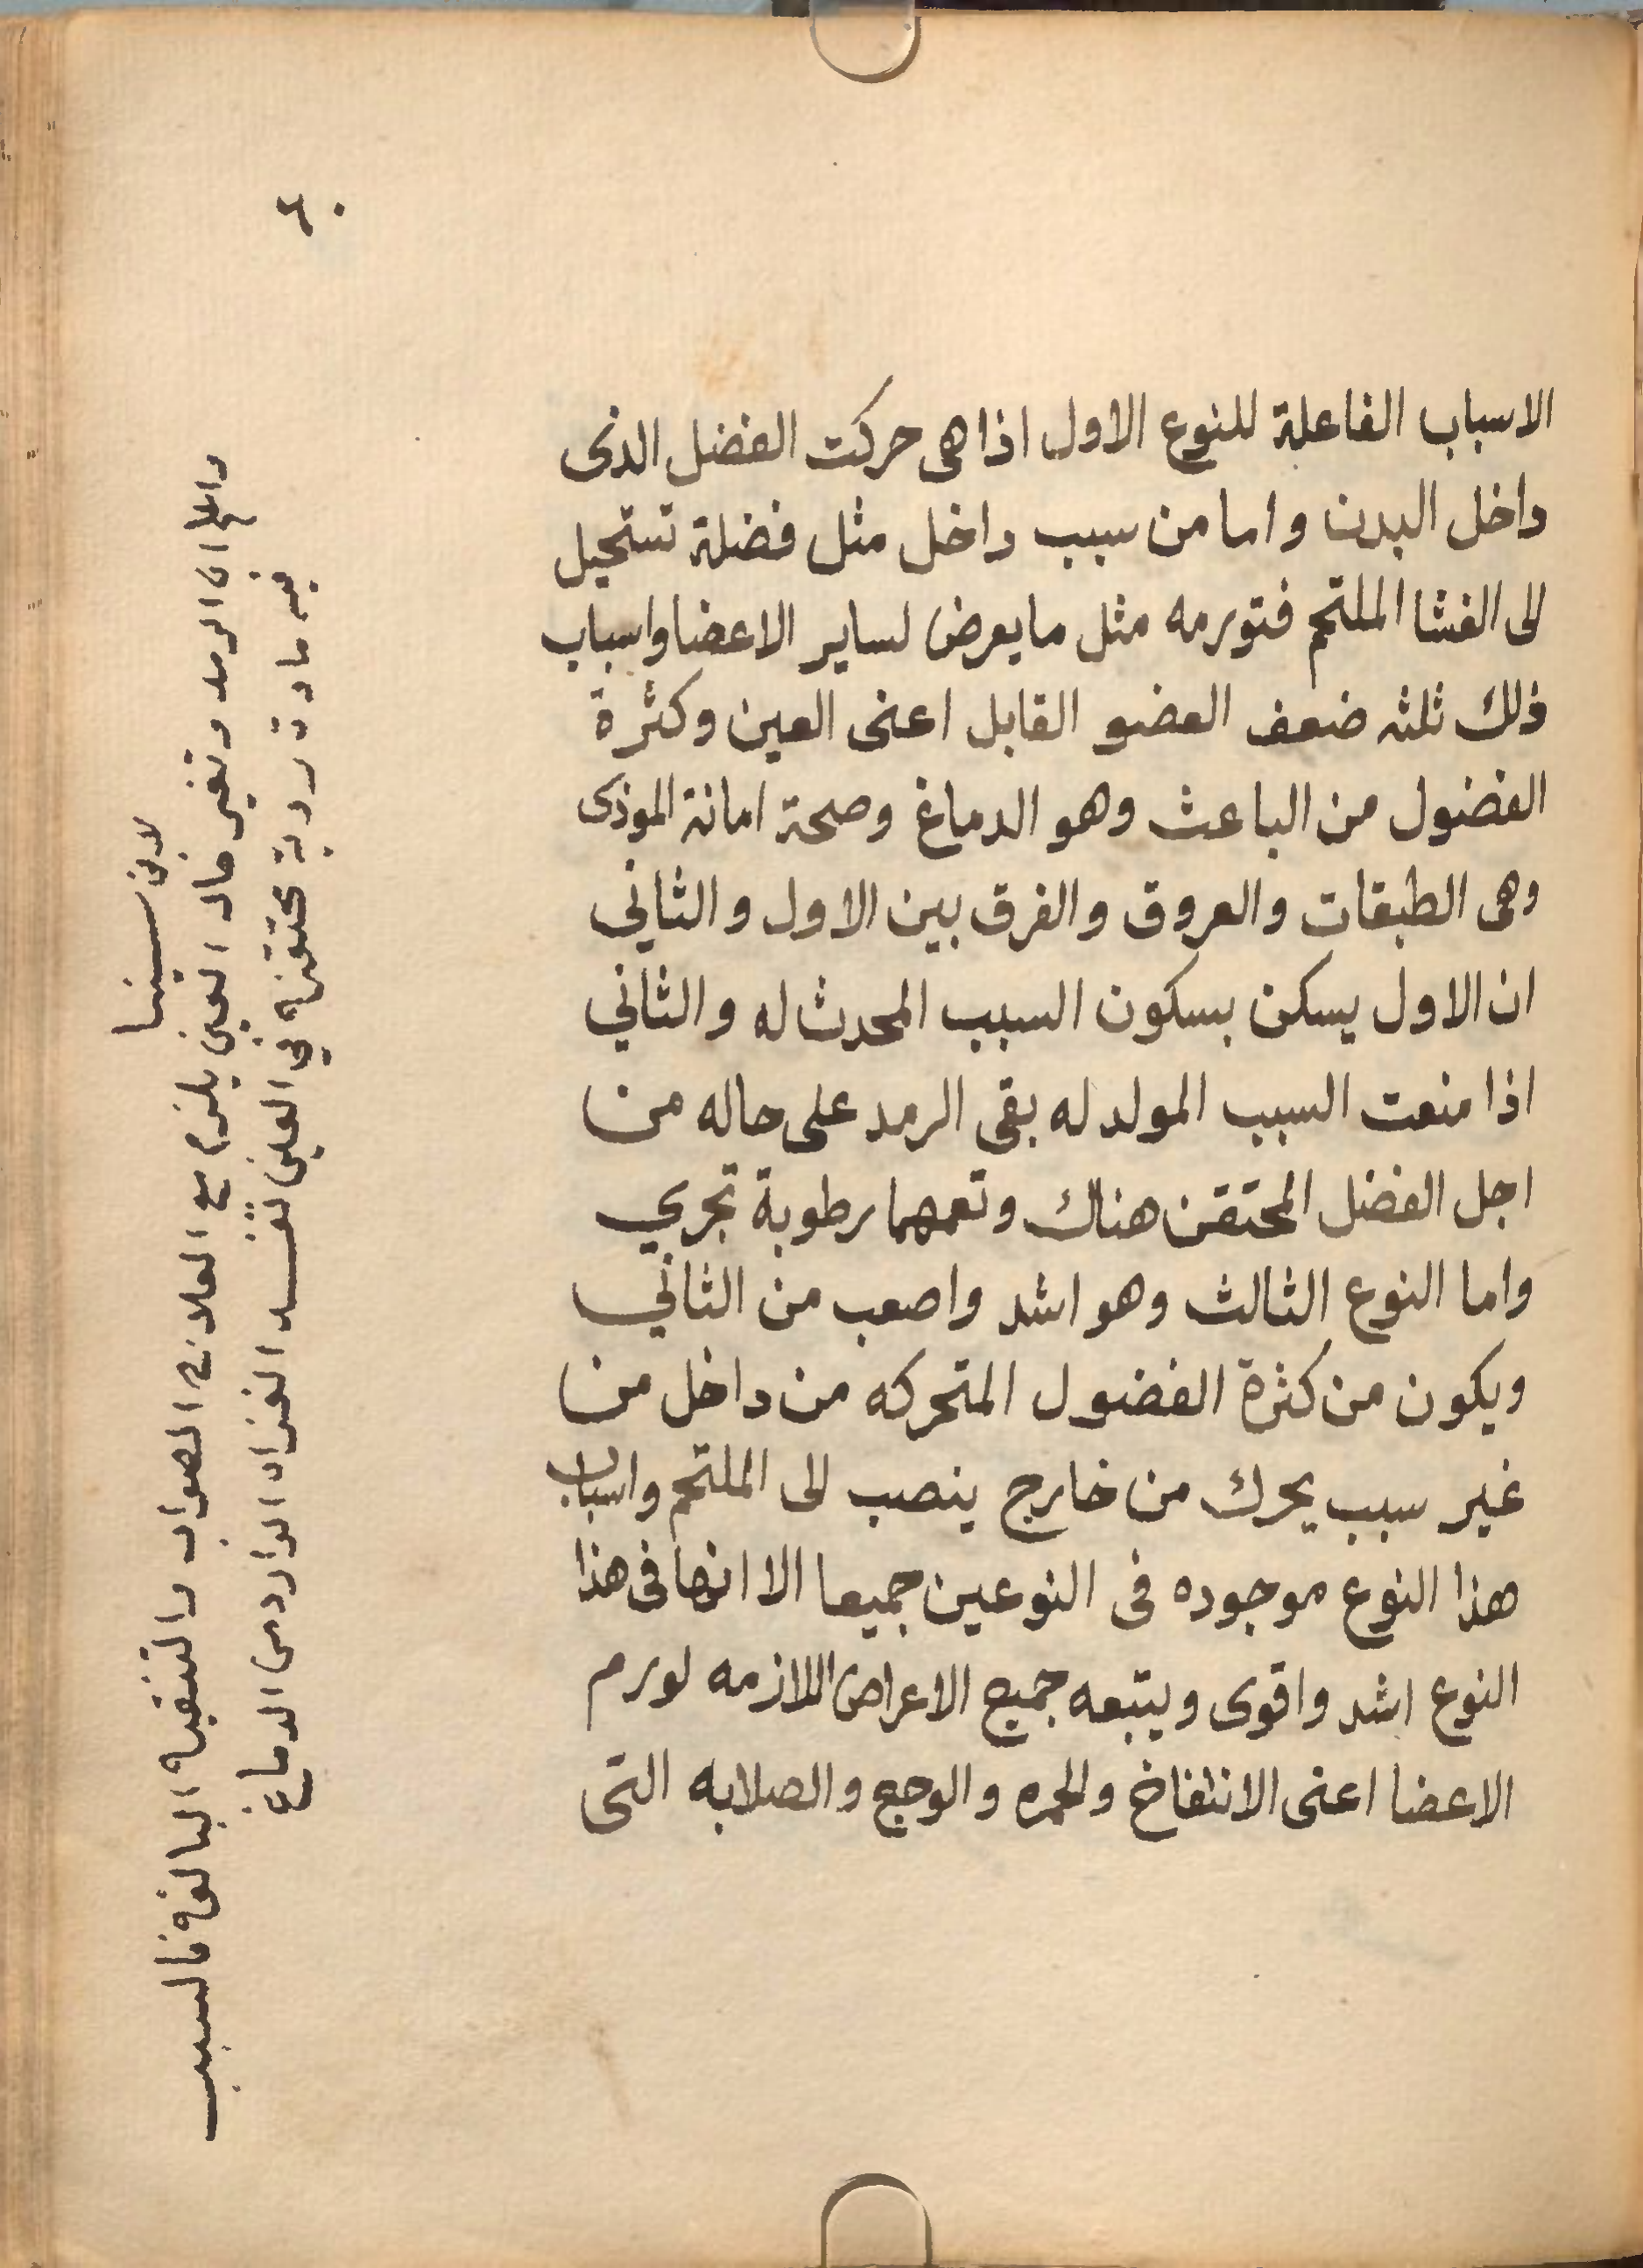 ٤٠
الاسباب الفاعلة للنوع الاول اذا هى حركت الفضل الذى
داخل البدن واما من سبب داخل مثل فضلة تستحيل
الى الغشا الملتحم فتورمه مثل ما يعرض لساير الاعضا واسباب
ذلك ثلثه ضعف العضو القابل اعنى العين وكثرة
الفضول من الباعث وهو الدماغ وصحة امانة الموذى
وهى الطبقات والعروق والفرق بين الاول والثاني
ان الاول يسكن بسكون السبب المحدث له والثاني
اذا منعت السبب المولد له بقى الرمد على حاله من
اجل الفضل المحتقن هناك وتعمهما رطوبة تجري
واما النوع الثالث وهو اشد واصعب من الثاني
ويكون من كثرة الفضول المتحركه من داخل من
غير سبب يحرك من خارج ينصب الى الملتحم واسباب
هذا النوع موجوده فى النوعين جميعا الا انها فى هذا
النوع اشد واقوى ويتبعه جميع الاعراض اللازمه لورم
الاعضا اعنى الانتفاخ والحمره والوجع والصلابه التى
لابن سينا
واعلم ان الرمد وتغير حال العين يلزم مع العلاج الصواب والتنقية البالغة فالسبب
فيه مادة ردية محتقنة في العين تفسد الغذاء الوارد من الدماغ